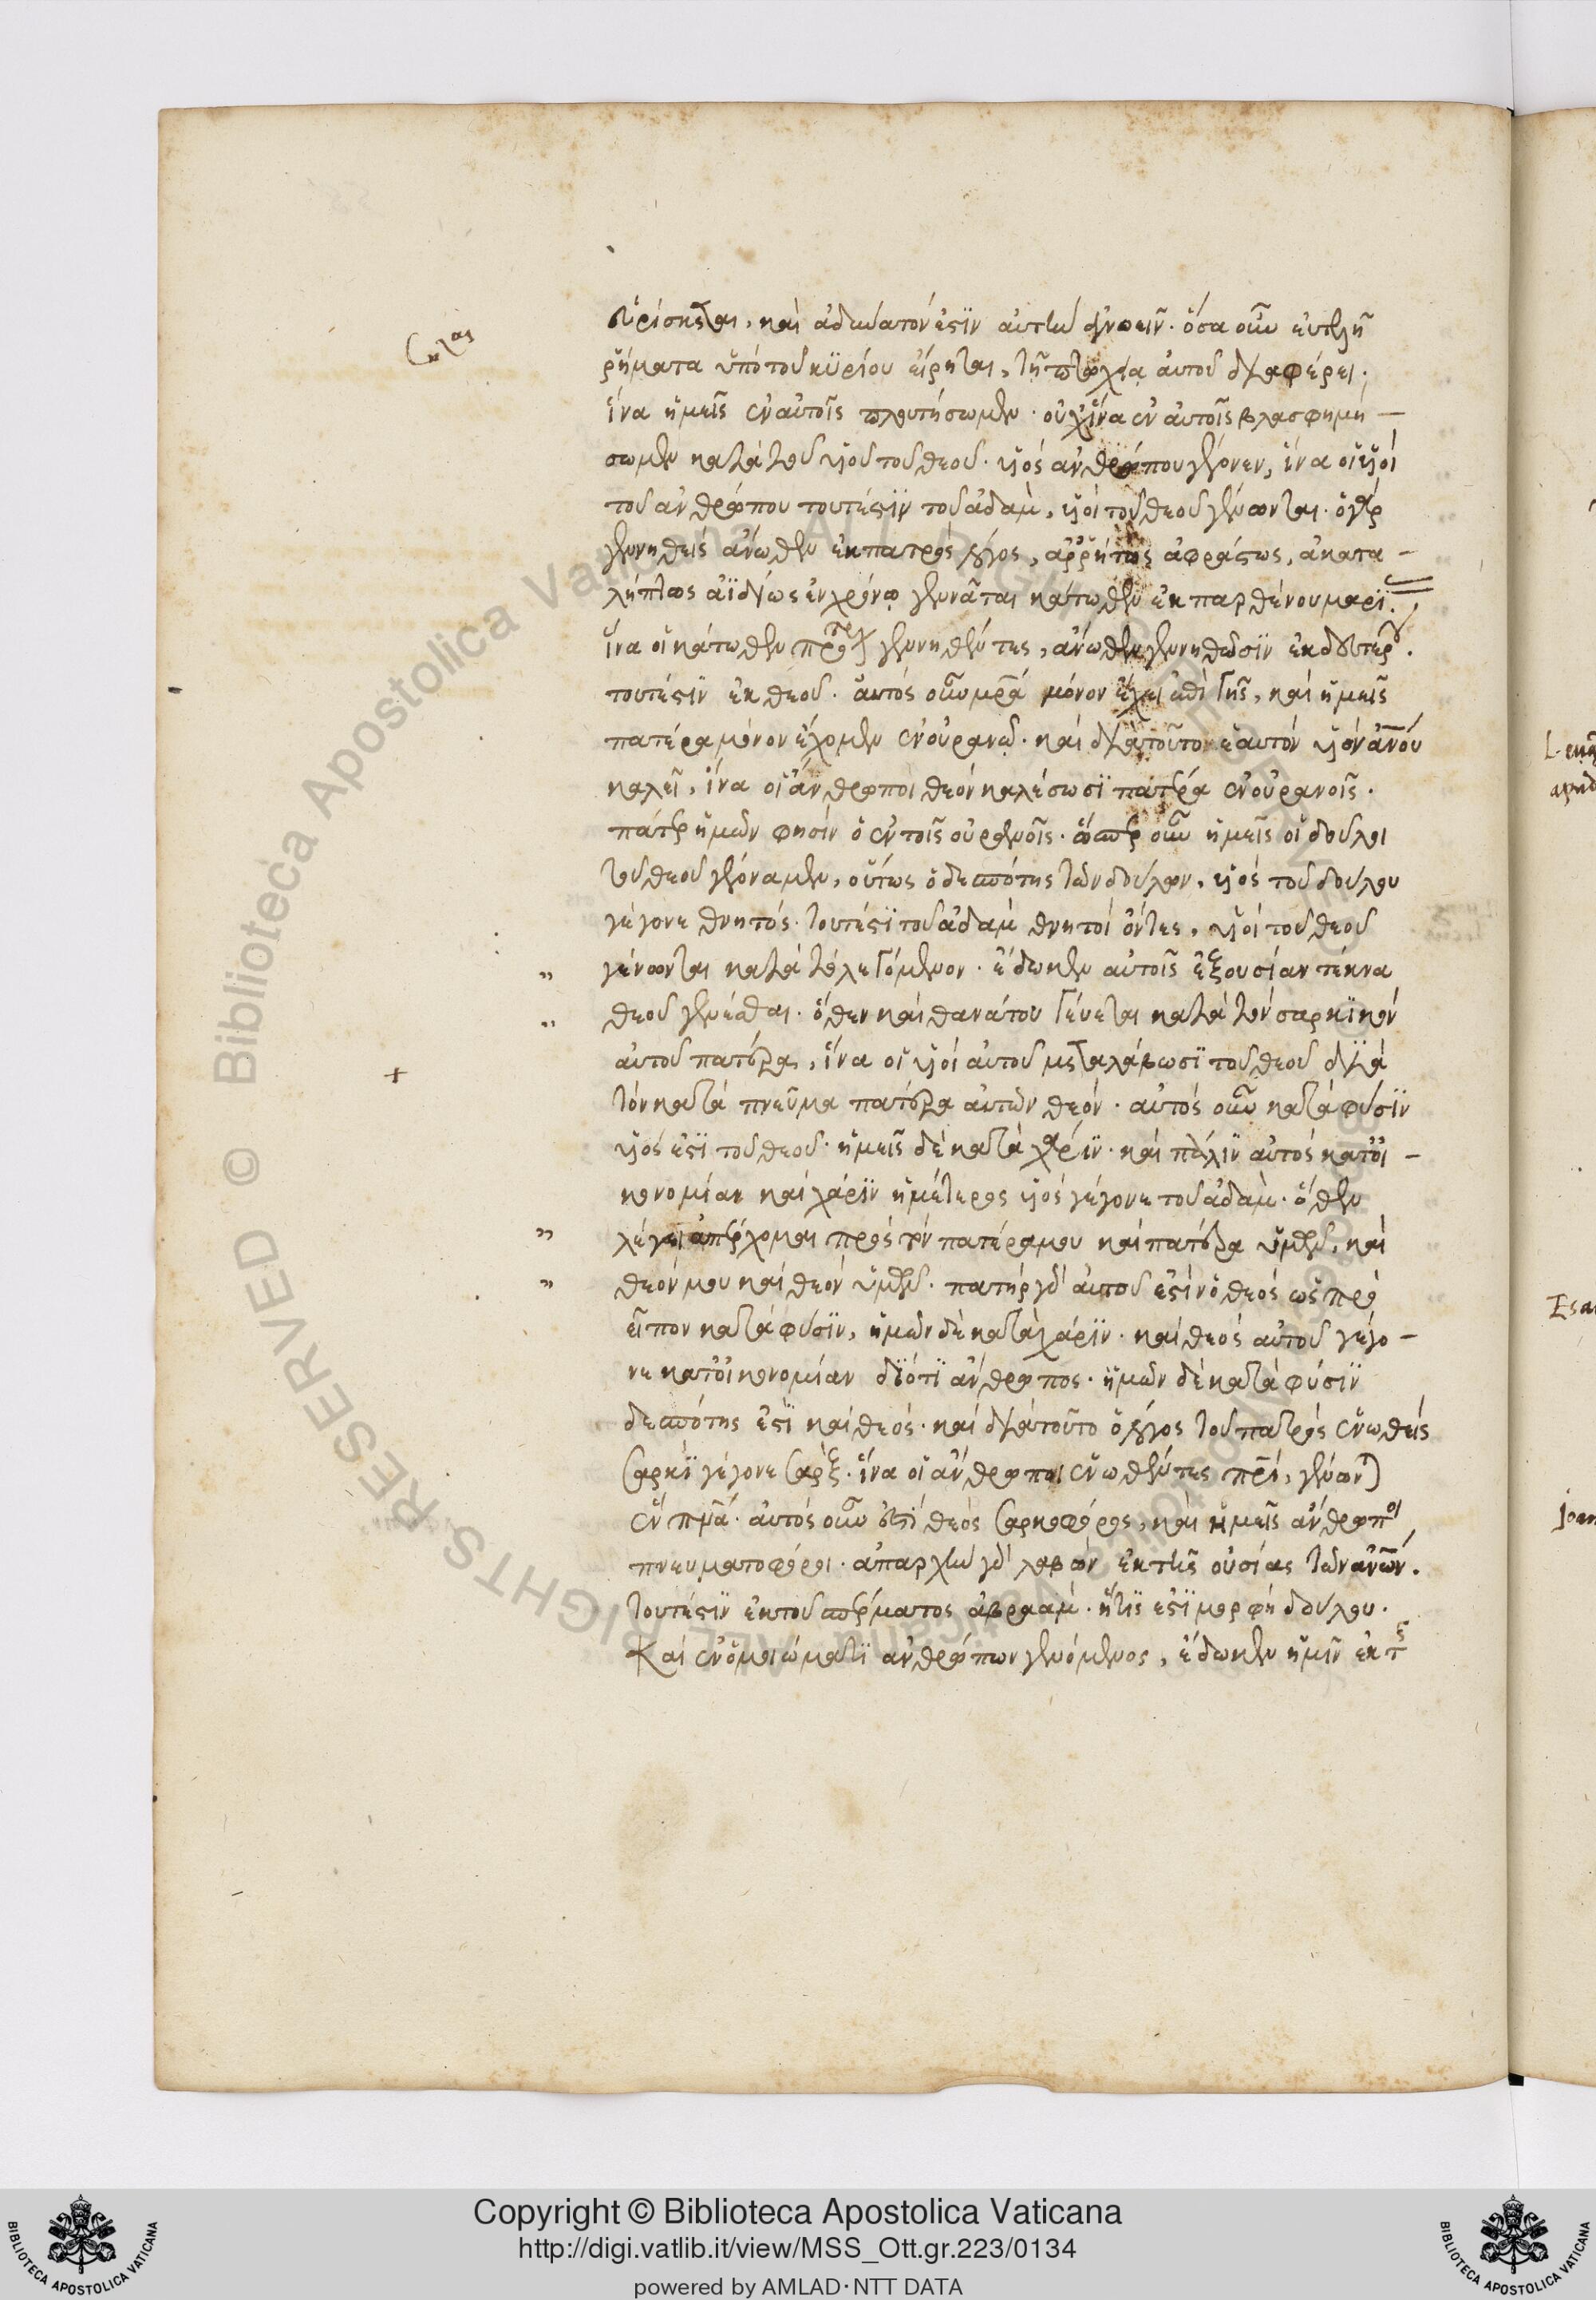 εὑρίσκεται, καὶ ἀδύνατόν ἐστϊν αὐτὴν εἰπεῖν. ὅσα οὖν εὐτελῆ
ῥήματα ὑπὸ τοῦ κυρίου εἴρηται, τῇ πτωχείᾳ αὐτοῦ διαφέρει.
ἵνα ἡμεῖς ἐν αὐτοῖς πλουτήσωμεν. οὐχ ἵνα ἐν αὐτοῖς βλασφημή –
σωμεν κατὰ τοῦ υἱοῦ τοῦ θεοῦ. υἱὸς ἀνθρώπου γέγονεν, ἵνα οἱ υἱοὶ
τοῦ ἀνθρώπου τουτέστϊν τοῦ ἀδὰμ, υἱοὶ τοῦ θεοῦ γένωνται. ὁ γὰρ
γεννηθεὶς ἄνωθεν ἐκ πατρὸς λόγος, ἀρρήτως ἀφράστως, ἀκατα –
λήπτως ἀϊδίως ἐν χρόνῳ γεννᾶται κάτωθεν ἐκ παρθένου μαρί
ἵνα οἱ κάτωθεν πρότερον γεννηθέντες, ἄνωθεν γεννηθῶσϊν ἐκ δευτέρου.
τουτέστϊν ἐκ θεοῦ. αὐτὸς οὖν μρ̃α μόνον ἔχει ἐπὶ γῆς, καὶ ἡμεῖς
πατέρα μόνον ἔχομεν ἐν οὐρανῷ. καὶ διὰ τοῦτο ἑαυτὸν υἱὸν ἀνου
καλεῖ, ἵνα οἱ ἄνθρωποι θεὸν καλέσωσϊ πατέρα ἐν οὐρανοῖς.
πάτερ ἡμῶν φησὶν ὁ ἐν τοῖς οὐρανοῖς. ὥσπερ οὖν ἡμεῖς οἱ δοῦλοι
τοῦ θεοῦ γεγόναμεν, οὕτως ὁ δεσπότης τῶν δούλων, υἱὸς τοῦ δούλου
γέγονε θνητὸς. τουτέστϊ τοῦ ἀδὰμ θνητοὶ ὄντες, υἱοὶ τοῦ θεοῦ
γένωνται κατὰ τὸ λεγόμενον. ἔδωκεν αὐτοῖς ἐξουσίαν τέκνα
θεοῦ γενέσθαι. ὅθεν καὶ θανάτου γεύεται κατὰ τὸν σαρκϊκὸν
αὐτοῦ πατέρα, ἵνα οἱ υἱοὶ αὐτοῦ μεταλάβωσϊ τοῦ θεοῦ διὰ
τὸν κατὰ πνεῦμα πατέρα αὐτῶν θεόν. αὐτὸς οὖν κατὰ φύσϊν
υἱός ἐστϊ τοῦ θεοῦ. ἡμεῖς δὲ κατὰ χάρϊν. καὶ πάλϊν αὐτὸς κατ' οἰ –
κονομίαν καὶ χάρϊν ἡμέτερος υἱὸς γέγονε τοῦ ἀδὰμ. ὅθεν
λέγει ἀπέρχομαι πρὸς τὸν πατέρα μου καὶ πατέρα ὑμῶν, καὶ
θεόν μου καὶ θεὸν ὑμῶν. πατὴρ γὰρ αὐτοῦ ἐστὶν ὁ θεὸς ὡς προ
εῖπον κατὰ φύσϊν, ἡμῶν δὲ κατὰ χάρϊν. καὶ θεὸς αὐτοῦ γέγο –
νε κατ' οἰκονομίαν δϊότϊ ἄνθρωπος. ἡμῶν δὲ κατὰ φύσϊν
δεσπότης ἐστϊ καὶ θεός. καὶ διὰ τοῦτο ὁ λόγος τοῦ πατρὸς ἑνωθεὶς
σαρκϊ γέγονε σὰρξ. ἵνα οἱ ἄνθρωποι ἑνωθέντες πν̃ι, γένων
ἓν πν̃α. αὐτὸς οὖν ἐστὶ θεὸς σαρκοφόρος, καὶ ἡμεῖς ἄνθρωποι
πνευματοφόροι. ἀπαρχὴν γὰρ λαβὼν ἐκ τῆς οὐσίας τῶν ἀνων.
τουτέστϊν ἐκ τοῦ σπέρματος ἀβραὰμ. ἥτϊς ἐστϊ μορφὴ δούλου.
καὶ ἐν ὁμοιώματϊ ἀνθρώπων γενόμενος, ἔδωκεν ἡμῖν ἐκ τ